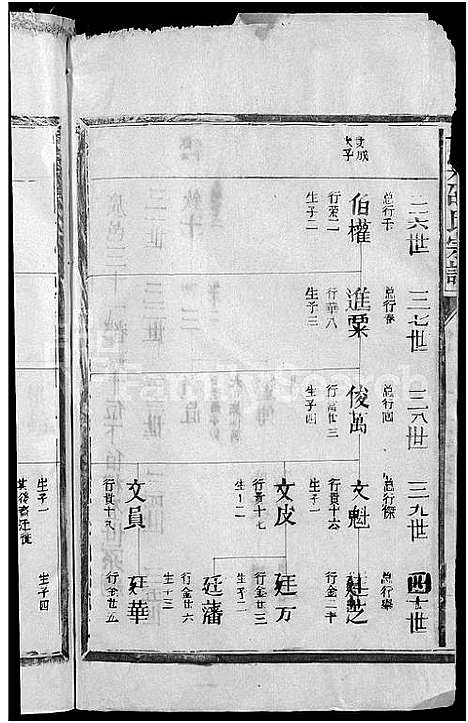 邵氏宗譜
三六世
總行千
伯權
行榮二
生子二
文成
次子
三七世
總行春
進粟
行華八
生子三
三八世
總行四
俊萬
行萬廿三
生子四
三九世
總行傑
文魁
行貫十六
生子一
文皮
行貫十七
生子二
文員
行貫十九
生子一
四十世
總行舉
廷芝
行金二十
廷万
行金廿三
生子二
廷藩
行金廿六
生子三
廷華
行金廿五
生子四
FamilySearch